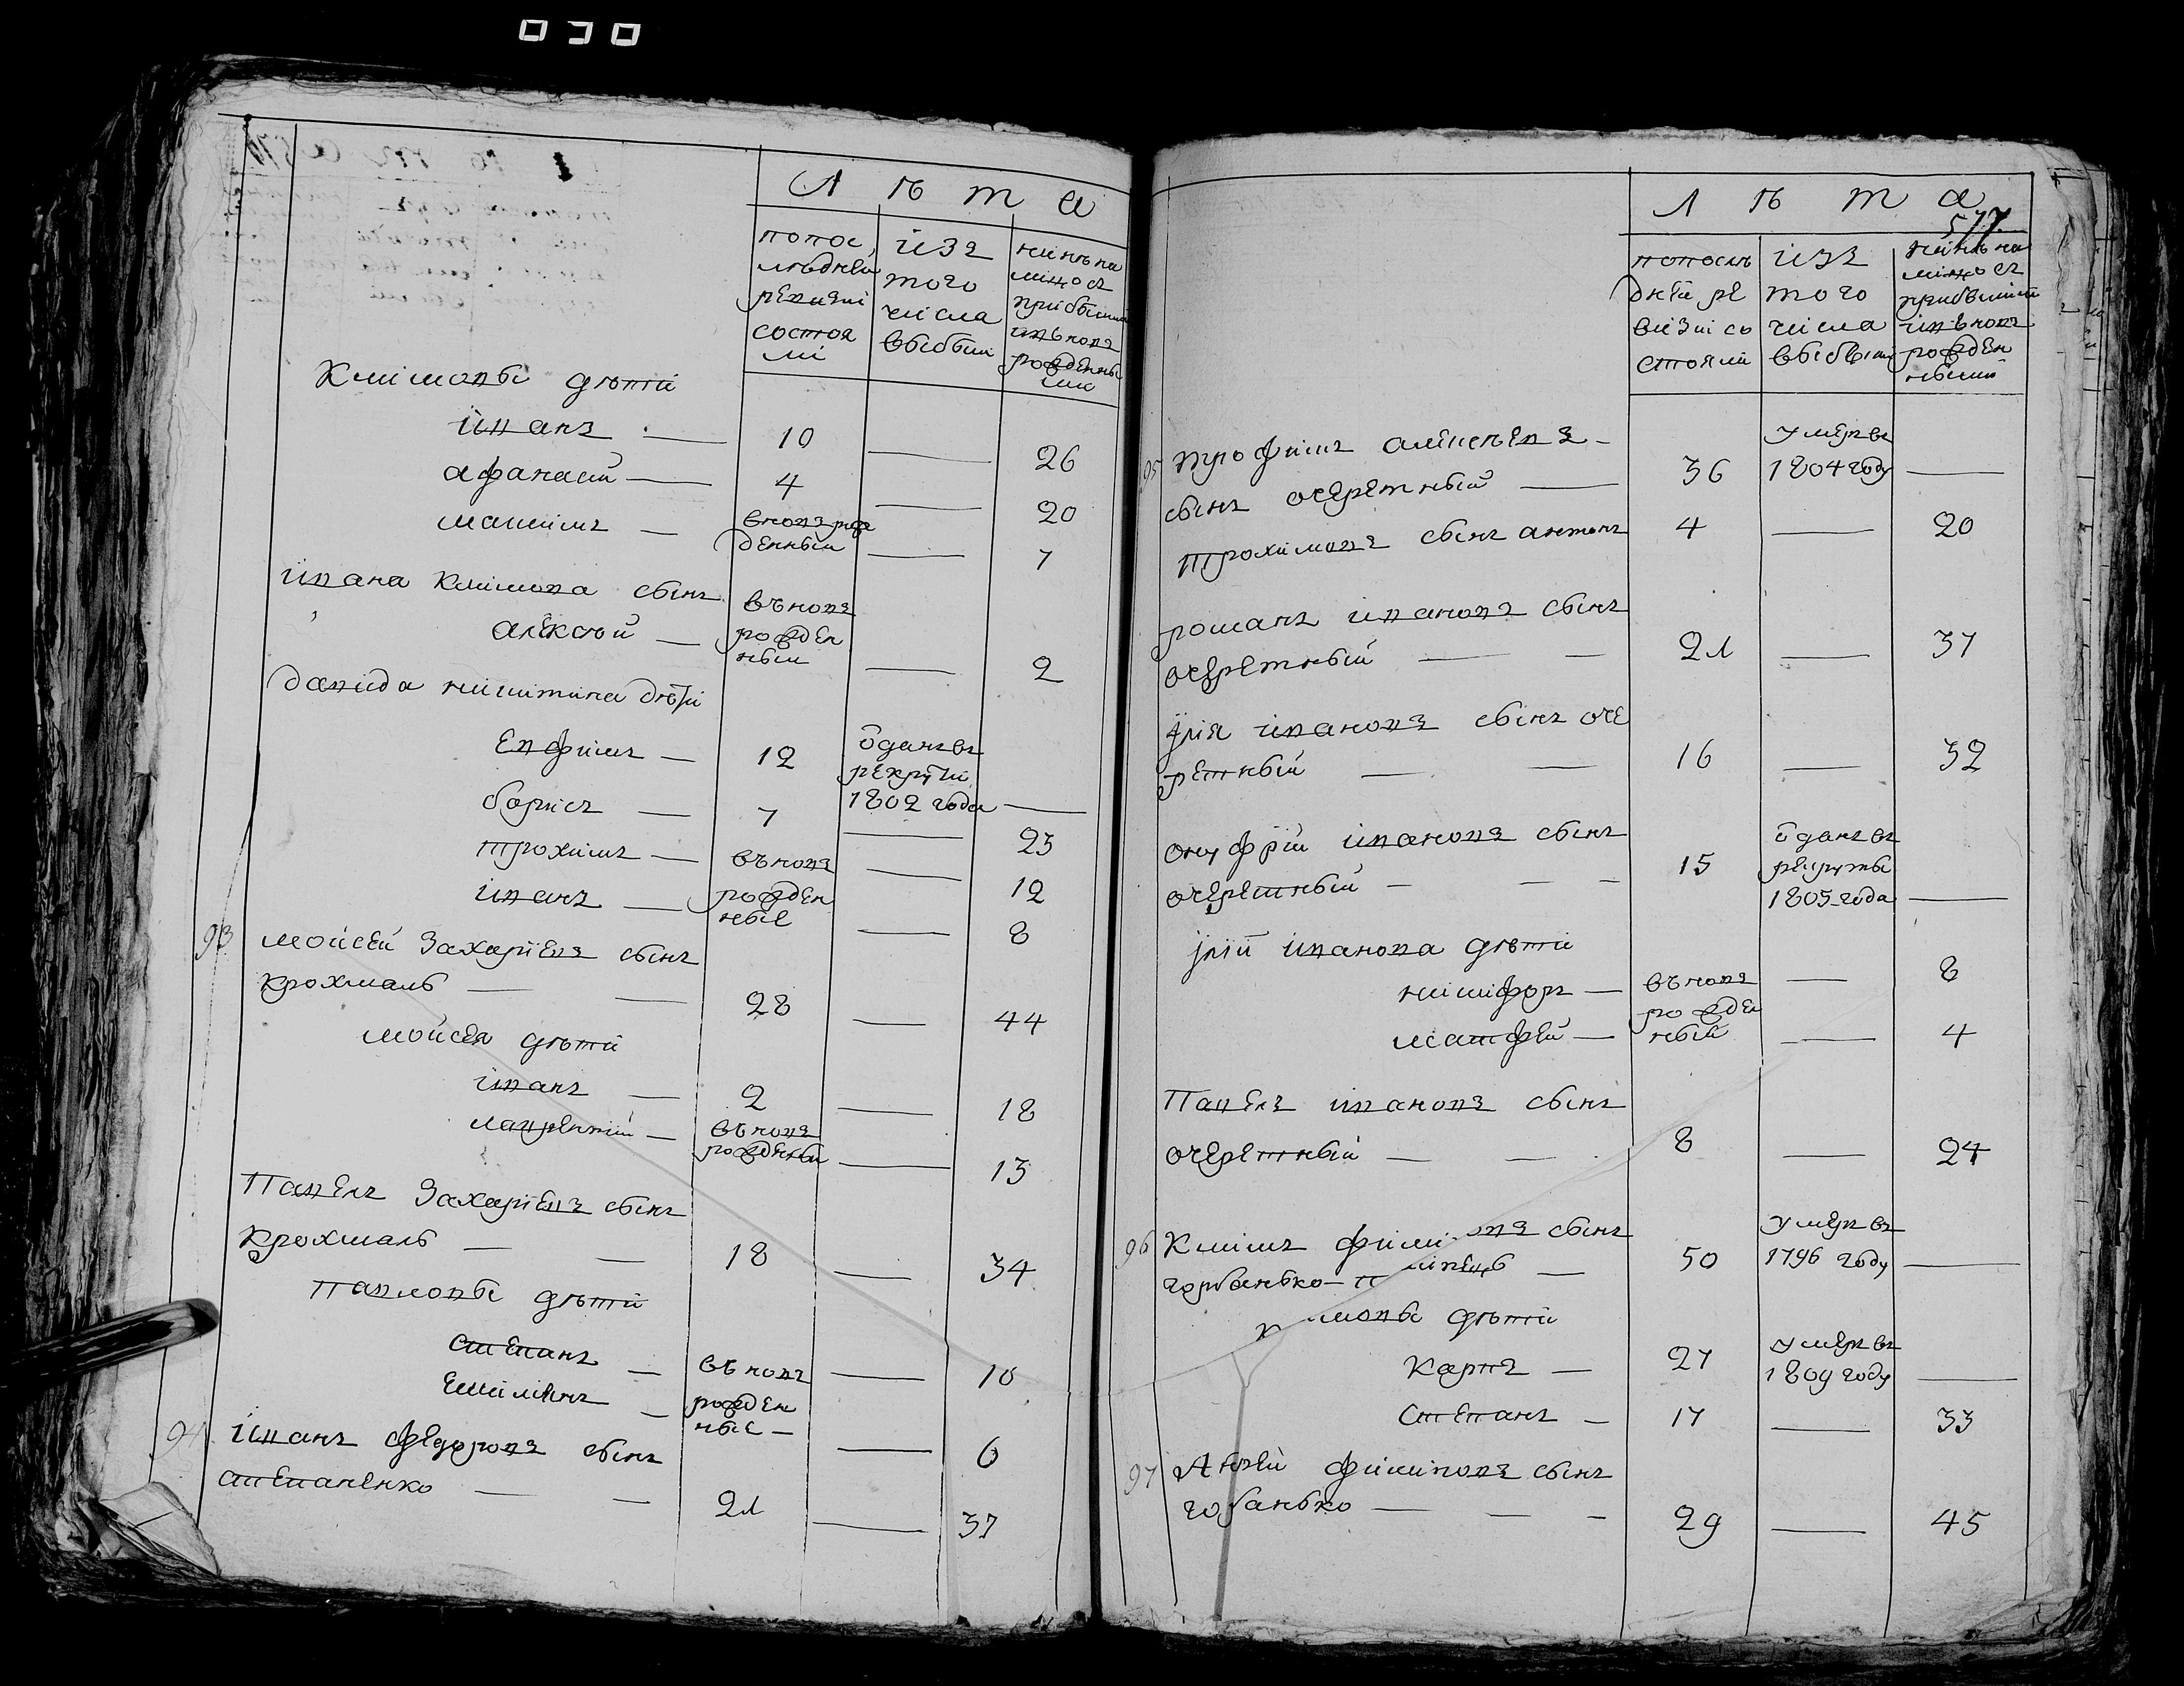 030
Л Ѣ т а
попос
лѣдней
ревизиі
состоя
лі
изъ
того
числа
выбыли
нинѣ на
лицо съ
прибылими
и вновъ
рожденны
ми
Климовы дѣти
иванъ — 10 — 26
афанасий — 4 — 20
максимъ — вновъ рож
денный — 7
ивана климова сынъ
алексѣй — въновъ
рожден
ный — 2
давида никитина дѣти
евфимъ — 12 ѿданъ въ
рекруты
1802 года —
борисъ — 7 — 23
трохимъ — въновъ — 12
иванъ — рожден
ные — 8
93 мойсей захариевъ сынъ
крохмаль — — 28 — 44
мойсея дѣти
иванъ — 2 — 18
лаврентий — въновъ
рожденный — 13
Павелъ захариевъ сынъ
крохмаль — — 18 — 34
павловы дѣти
степанъ — въновъ — 10
емилиянъ — рожден
ные — — 6
94 иванъ федоровъ сынъ
степаненко — — 21 — 37
Л Ѣ т а
577
попослѣ
дней ре
визиі со
стояли
изъ
того
числа
выбыли
нинѣ на
лицо съ
прибылими
и вновъ
рожден
ными
95 трофимъ алексѣевъ —
сынъ очеретный — 36 умеръ въ
1804 году —
трохимовъ сынъ антонъ 4 — 20
романъ ивановъ сынъ
очеретный — — 21 — 37
илія ивановъ сынъ оче
ретный — — 16 — 32
онуфрій ивановъ сынъ
очеретный — — — 15 ѿданъ въ
рекруты
1805 года —
иліи иванова дѣти
никифоръ — въновъ — 8
рожден
матфей — ный — 4
Павелъ ивановъ сынъ
очеретный — — 8 — 24
96 Климъ сынъ
горбанько — 50 умеръ въ
1796 году —
дѣти
карпъ — 27 умеръ въ
1809 году —
степанъ — 17 — 33
97 Андрей филиповъ сынъ
горбанько — — — 29 — 45